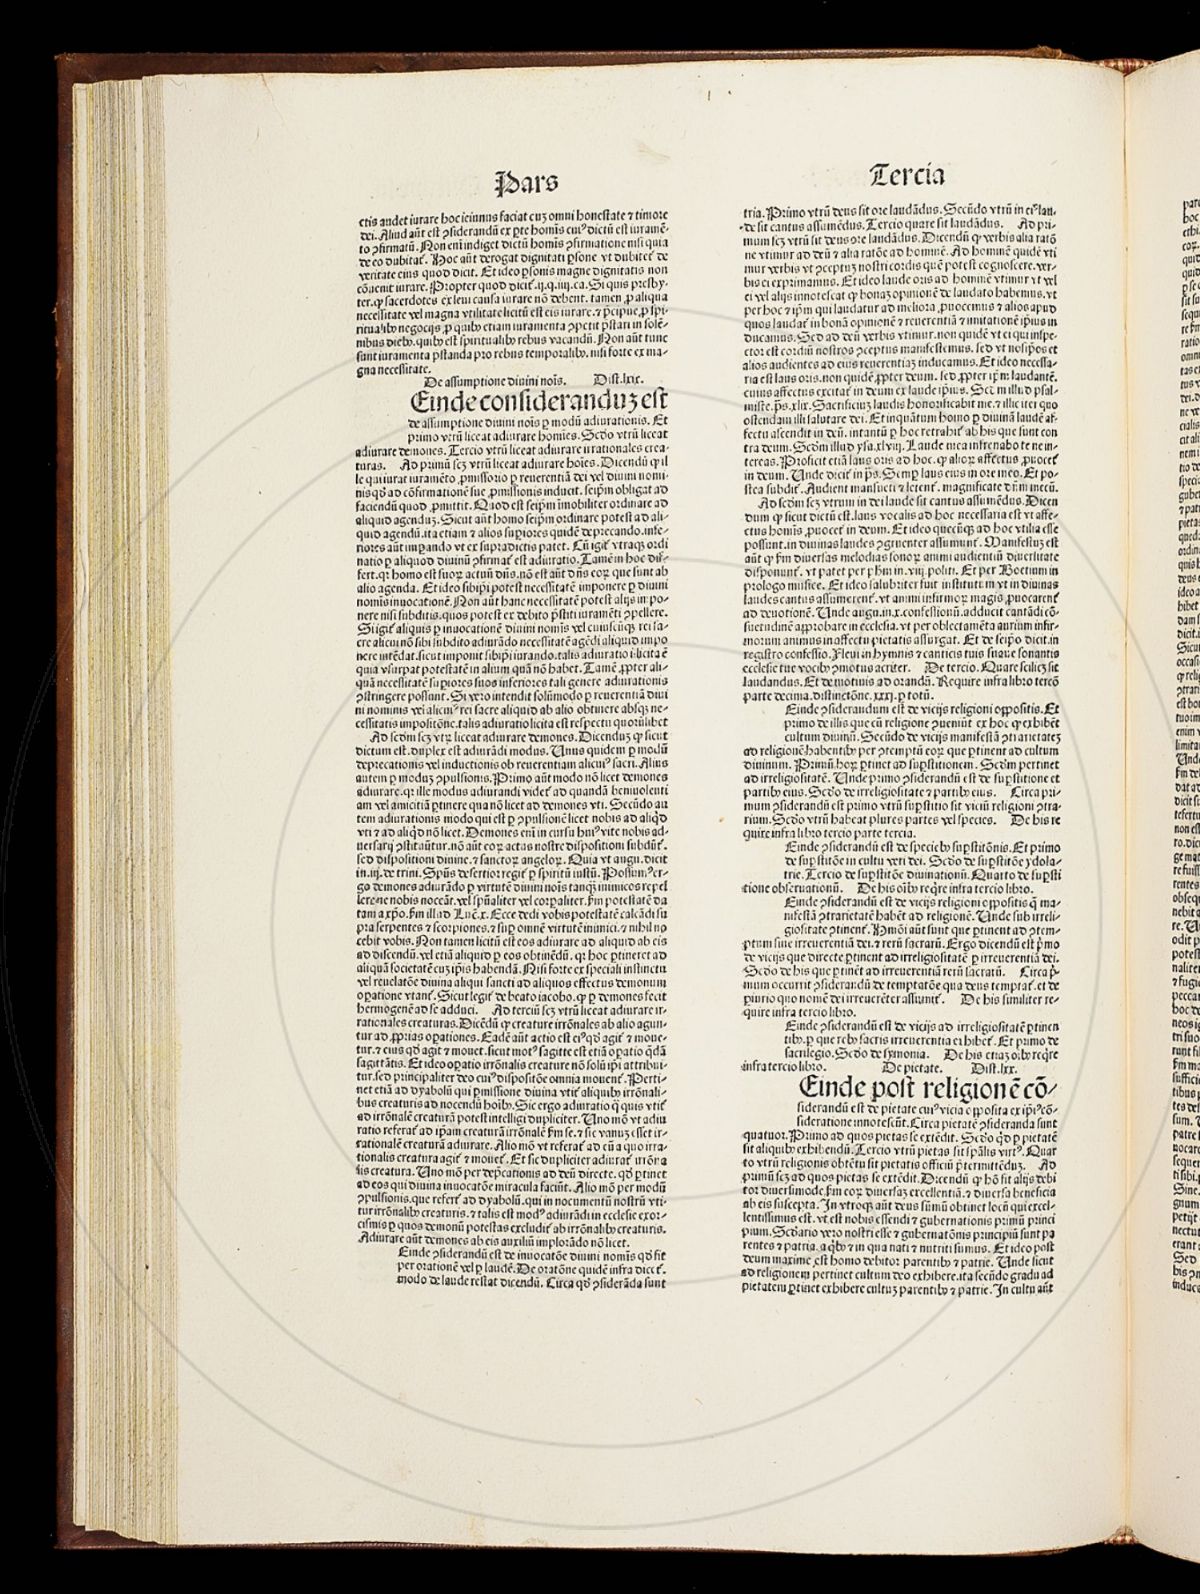 Pars
Tercia
ctis audet iurare hoc ieiunus faciat cuȝ omni honestate ⁊ timore
dei. Aliud aūt est ꝯsiderandū ex ꝑte homīs cuiꝰ dictū est iuramē-
to ꝯfirmatū. Non eni indiget dictū homīs ꝯfirmatione nisi quia
de eo dubitat̄. Hoc aūt derogat dignitati ꝑsone vt dubitet̄ de
veritate eius quod dicit. Et ideo ꝑsonis magne dignitatis non
cōuenit iurare. Propter quod dicit̄.ij.q.iiij.ca. Si quis presby-
ter.ꝙ sacerdotes ex leui causa iurare nō debent. tamen ꝓ aliqua
necessitate vel magna vtilitate licitū est eis iurare. ⁊ p̄cipue ꝓ spi-
ritualibꝰ negocijs ꝓ quibꝰ etiam iuramenta ꝯpetit p̄stari in solē-
nibus diebꝰ. quibꝰ est spiritualibꝰ rebus vacandū. Non aūt tunc
sunt iuramenta p̄standa pro rebus temporalibꝰ. nisi forte ex ma-
gna necessitate.
De assumptione diuini nois. Dist.lxix.
Einde consideranduȝ est
de assumptione diuini nois ꝑ modū adiurationis. Et
primo vtrū liceat adiurare homīes. Scd̄o vtrū liceat
adiurare demones. Tercio vtrū liceat adiurare irrationales crea-
turas. Ad primū scȝ vtrū liceat adiurare hoīes. Dicendū ꝙ il
le qui iurat iuramēto ꝓmissorio ꝑ reuerentiā dei vel diuini nomi-
nis qd̄ ad cōfirmationē sue ꝓmissionis inducit. seip̄m obligat ad
faciendū quod ꝓmittit. Quod est seip̄m imobiliter ordinare ad
aliquid agenduȝ. Sicut aūt homo seip̄m ordinare potest ad ali-
quid agendū. ita etiam ⁊ alios suꝑiores quidē deprecando. infe-
riores aūt imꝑando vt ex supradictis patet. Cū igit̄ vtraqꝫ ordi
natio ꝑ aliquod diuinū ꝯfirmat̄ est adiuratio. Tamē in hoc dif-
fert. qꝛ homo est suoꝝ actuū dn̄s. nō est aūt dn̄s eoꝝ que sunt ab
alio agenda. Et ideo sibip̄i potest necessitatē imponere ꝑ diuini
nomīs inuocationē. Non aūt hanc necessitatē potest alijs impo-
nere nisi subditis. quos potest ex debito p̄stiti iuramēti ꝯpellere.
Si igit̄ aliquis ꝑ inuocationē diuini nomīs vel cuiuscūqꝫ rei sa-
cre alicui nō sibi subdito adiurādo necessitatē agēdi aliquid impo
nere intēdat. sicut imponit sibip̄i iurando. talis adiuratio illicita ē
quia vsurpat potestatē in alium quā nō habet. Tamē ꝓpter ali-
quā necessitatē suꝑiores suos inferiores tali genere adiurationis
ꝯstringere possunt. Si vero intendit solūmodo ꝑ reuerentiā diui
ni nominis vel alicuiꝰ rei sacre aliquid ab alio obtinere absqꝫ ne-
cessitatis impositōne. talis adiuratio licita est respectu quorūlibet
Ad scd̄m scȝ vtꝝ liceat adiurare demones. Dicenduȝ ꝙ sicut
dictum est. duplex est adiurādi modus. Unus quidem ꝑ modū
deprecationis vel inductionis ob reuerentiam alicuiꝰ sacri. Alius
autem ꝑ moduȝ ꝯpulsionis. Primo aūt modo nō licet demones
adiurare. qꝛ ille modus adiurandi videt̄ ad quandā beniuolenti
am vel amicitiā ꝑtinere qua nō licet ad demones vti. Secūdo au
tem adiurationis modo qui est ꝑ ꝯpulsionē licet nobis ad aliqd̄
vti ⁊ ad aliqd̄ nō licet. Demones eni in cursu huiꝰ vite nobis ad-
uersarij ꝯstitūtur. nō aūt eoꝝ actus nostre dispositioni subdūt̄.
sed dispositioni diuine. ⁊ sanctoꝝ angeloꝝ. Quia vt augu. dicit
in.iij. de trini. Spūs desertior regit̄ ꝑ spiritū iustū. Possumꝰ er-
go demones adiurādo ꝑ virtutē diuini nois tanqȝ inimicos repel
lere ne nobis noceāt. vel spūaliter vel corꝑaliter. ẜm potestatē da
tam a xp̄o. ẜm illud Luc̄.x. Ecce dedi vobis potestatē calcādi su
pra serpentes ⁊ scorpiones. ⁊ suꝑ omnē virtutē inimici. ⁊ nihil no
cebit vobis. Non tamen licitū est eos adiurare ad aliquid ab eis
ad discendū. vel etiā aliquid ꝑ eos obtinēdū. qꝛ hoc ꝑtineret ad
aliquā societatē cuȝ ip̄is habendā. Nisi forte ex speciali instinctu
vel reuelatōe diuina aliqui sancti ad aliquos effectus demonum
oꝑatione vtant̄. Sicut legit̄ de beato iacobo. ꝙ ꝑ demones fecit
hermogenē ad se adduci. Ad terciū scȝ vtrū liceat adiurare ir-
rationales creaturas. Dicēdū ꝙ creature irrōnales ab alio agun-
tur ad ꝓprias oꝑationes. Eadē aūt actio est eiꝰ qd̄ agit̄ ⁊ moue-
tur. ⁊ eius qd̄ agit ⁊ mouet. sicut motꝰ sagitte est etiā oꝑatio qd̄ā
sagittātis. Et ideo oꝑatio irrōnalis creature nō solū ip̄i attribui-
tur. sed principaliter deo cuiꝰ dispositōne omnia mouent̄. Perti-
net etiā ad dyabolū qui ꝑmissione diuina vtit̄ aliquibꝰ irrōnali-
bus creaturis ad nocendū hoībꝰ. Sic ergo adiuratio q̄ quis vtit̄
ad irrōnalē creaturā potest intelligi dupliciter. Uno mō vt adiu
ratio referat̄ ad ip̄am creaturā irrōnalē ẜm se. ⁊ sic vanuȝ esset ir-
rationalē creaturā adiurare. Alio mō vt referat̄ ad eū a quo irra-
tionalis creatura agit̄ ⁊ mouet̄. Et sic dupliciter adiurat̄ irrōna
lis creatura. Uno mō per dep̄cationis ad deū directe. qd̄ ꝑtinet
ad eos qui diuina inuocatōe miracula faciūt. Alio mō per modū
ꝯpulsionis. que refert̄ ad dyabolū. qui in nocumentū nostrū vti-
tur irrōnalibꝰ creaturis. ⁊ talis est modꝰ adiurādi in ecclesie exor-
cismis ꝑ quos demonū potestas excludit̄ ab irrōnalibꝰ creaturis.
Adiurare aūt demones ab eis auxiliū implorādo nō licet.
Einde ꝯsiderandū est de inuocatōe diuini nomīs qd̄ fit
per orationē vel ꝑ laudē. De oratōne quidē infra dicet̄.
modo de laude restat dicendū. Circa qd̄ ꝯsiderāda sunt
tria. Primo vtrū deus sit ore laudādus. Secūdo vtrū in eiꝰ lau-
de sit cantus assumēdus. Tercio quare sit laudādus. Ad pri-
mum scȝ vtrū sit deus ore laudādus. Dicendū ꝙ verbis alia ratō
ne vtimur ad deū ⁊ alia ratōe ad hominē. Ad hominē quidē vti
mur verbis vt ꝯceptuȝ nostri cordis quē potest cognoscere. ver-
bis ei exprimamus. Et ideo laude oris ad hominē vtimur vt vel
ei vel alijs innotescat ꝙ bonaȝ opinionē de laudato habemus. vt
per hoc ⁊ ip̄m qui laudatur ad meliora ꝓuocemus ⁊ alios apud
quos laudat̄ in bonā opinionē ⁊ reuerentiā ⁊ imitationē ip̄ius in
ducamus. Sed ad deū verbis vtimur. non quidē vt ei qui inspe-
ctor est cordiū nostros ꝯceptus manifestemus. sed vt nosip̄os et
alios audientes ad eius reuerentiaȝ inducamus. Et ideo necessa-
ria est laus oris. non quidē ꝓpter deum. sed ꝓpter ip̄m laudantē.
cuius affectus excitat̄ in deum ex laude ip̄ius. Scd̄m illud psal-
miste. ps̄.xlix. Sacrificiuȝ laudis honorificabit me. ⁊ illic iter quo
ostendam illi salutare dei. Et inquātum homo ꝑ diuinā laudē af-
fectu ascendit in deū. intantū ꝑ hoc retrahit̄ ab his que sunt con
tra deum. Scd̄m illud ysa.xlviij. Laude mea infrenabo te ne in-
tereas. Proficit etiā laus oris ad hoc. ꝙ alioꝝ affectus ꝓuocet̄
in deum. Unde dicit̄ in ps̄. Semꝑ laus eius in ore meo. Et po-
stea subdit̄. Audient mansueti ⁊ letent̄. magnificate dn̄m mecū.
Ad scd̄m scȝ vtrum in dei laude sit cantus assumēdus. Dicen
dum ꝙ sicut dictū est. laus vocalis ad hoc necessaria est vt affe-
ctus homīs ꝓuocet̄ in deum. Et ideo quecūqꝫ ad hoc vtilia esse
possunt. in diuinas laudes ꝯgruenter assumunt̄. Manifestuȝ est
aūt ꝙ ẜm diuersas melodias sonoꝝ animi audientiū diuersitate
disponunt̄. vt patet per ph̄m in.viij. polit. Et per Boetium in
prologo musice. Et ideo salubriter fuit institutum vt in diuinas
laudes cantus assumerent̄. vt animi infirmoꝝ magis ꝓuocarent̄
ad deuotionē. Unde augu. in.x. confessionū. adducit cantādi cō-
suetudinē approbare in ecclesia. vt per oblectamēta aurium infir-
morum animus in affectu pietatis assurgat. Et de seip̄o dicit. in
registro confessio. Fleui in hymnis ⁊ canticis tuis suaue sonantis
ecclesie tue vocibꝰ ꝯmotus acriter. De tercio. Quare scilicȝ sit
laudandus. Et de motiuis ad orandū. Require infra libro tercō
parte decima. distinctōne. xxxj. ꝑ totū.
Einde ꝯsiderandum est de vicijs religioni oppositis. Et
primo de illis que cū religione ꝯueniūt ex hoc ꝙ exhibēt
cultum diuinū. Secūdo de vicijs manifestā ꝯtrarietateȝ
ad religionē habentibꝰ per ꝯtemptū eoꝝ que ꝑtinent ad cultum
diuinum. Primū hoꝝ ꝑtinet ad suꝑstitionem. Scd̄m pertinet
ad irreligiositatē. Unde primo ꝯsiderandū est de suꝑstitione et
partibꝰ eius. Scd̄o de irreligiositate ⁊ partibꝰ eius. Circa pri-
mum ꝯsiderandū est primo vtrū suꝑstitio sit viciū religioni ꝯtra-
rium. Scd̄o vtrū habeat plures partes vel species. De his re
quire infra libro tercio parte tercia.
Einde ꝯsiderandū est de speciebꝰ suꝑstitōnis. Et primo
de suꝑstitōe in cultu veri dei. Scd̄o de suꝑstitōe ydola-
trie. Tercio de suꝑstitōe diuinationū. Quarto de suꝑsti
tione obseruationū. De his oībꝰ reqr̄e infra tercio libro.
Einde ꝯsiderandū est de vicijs religioni oppositis q̄ ma-
nifestā ꝯtrarietatē habēt ad religionē. Unde sub irreli-
giositate ꝯtinent̄. Hmōi aūt sunt que ꝑtinent ad ꝯtem-
ptum siue irreuerentiā dei. ⁊ rerū sacrarū. Ergo dicendū est p̄mo
de vicijs que directe ꝑtinent ad irreligiositatē ꝑ irreuerentiā dei.
Scd̄o de his que ꝑtinēt ad irreuerentiā rerū sacrarū. Circa p̄-
mum occurrit ꝯsiderandū de temptatōne qua deus temptat̄. et de
ꝑiurio quo nomē dei irreuerēter assumit̄. De his similiter re-
quire infra tercio libro.
Einde ꝯsiderandū est de vicijs ad irreligiositatē ꝑtinen
tibꝰ. ꝑ que rebꝰ sacris irreuerentia exhibet̄. Et primo de
sacrilegio. Scd̄o de symonia. De his etiaȝ oībꝰ reqr̄e
infra tercio libro. De pietate. Dist.lxx.
Einde post religionē cō-
siderandū est de pietate cuiꝰ vicia opposita ex ip̄iꝰ cō-
sideratione innotescūt. Circa pietatē ꝯsideranda sunt
quatuor. Primo ad quos pietas se extēdit. Scd̄o qd̄ ꝑ pietatē
sit aliquibꝰ exhibendū. Tercio vtrū pietas sit sp̄alis virtꝰ. Quar
to vtrū religionis obtētu sit pietatis officiū p̄termittēduȝ. Ad
primū scȝ ad quos pietas se extēdit. Dicendū ꝙ hō fit alijs debi
tor diuersimode ẜm eoꝝ diuersaȝ excellentiā. ⁊ diuersa beneficia
ab eis suscepta. In vtroqꝫ aūt deus sūmū obtinet locū qui excel-
lentissimus est. vt est nobis essendi ⁊ gubernationis primū princi
pium. Scd̄ario vero nostri esse ⁊ gubernatōnis principiū sunt pa
rentes ⁊ patria. a qbꝰ ⁊ in qua nati ⁊ nutriti sumus. Et ideo post
deum maxime est homo debitor parentibꝰ ⁊ patrie. Unde sicut
ad religionem pertinet cultum deo exhibere. ita secūdo gradu ad
pietatem ꝑtinet exhibere cultuȝ parentibꝰ ⁊ patrie. In cultu aūt